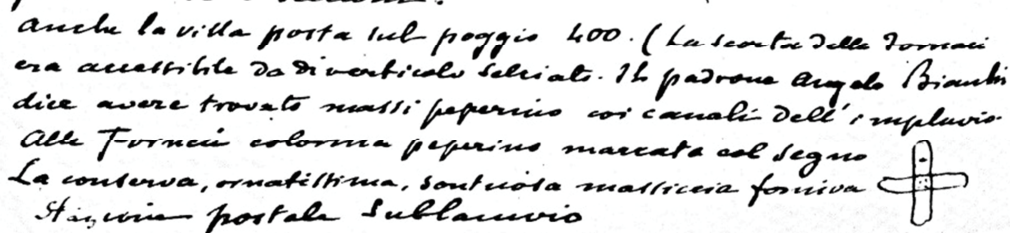 anche la villa posta sul poggio 400. (La scorta delle Fornaci
era accessibile da diverticolo selciato. Il padrone Angelo Bianchi
dice avere trovato massi peperino coi canali dell'impluvio
Alle Fornaci colonna peperino marcata col segno
La conserva, ornatissima, sontuosa massiccia forniva
Stazione postale Sublanuvio